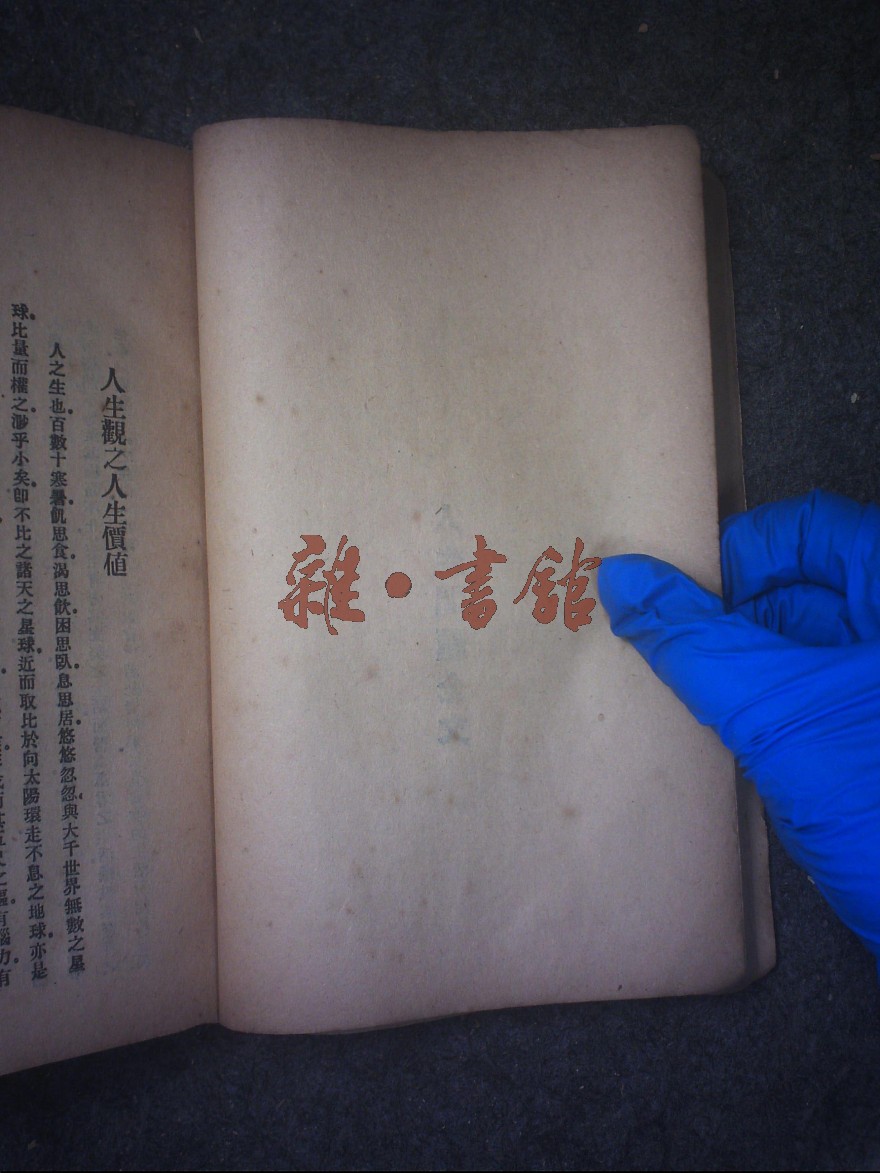 雜·書館
人生觀之人生價値
人之生也百數十寒暑飢思食渴思飲困思臥息思居悠悠忽忽與大千世界無數之星
球比量而權之渺乎小矣卽不比之諸天之星球近而取比於向太陽環走不息之地球亦是